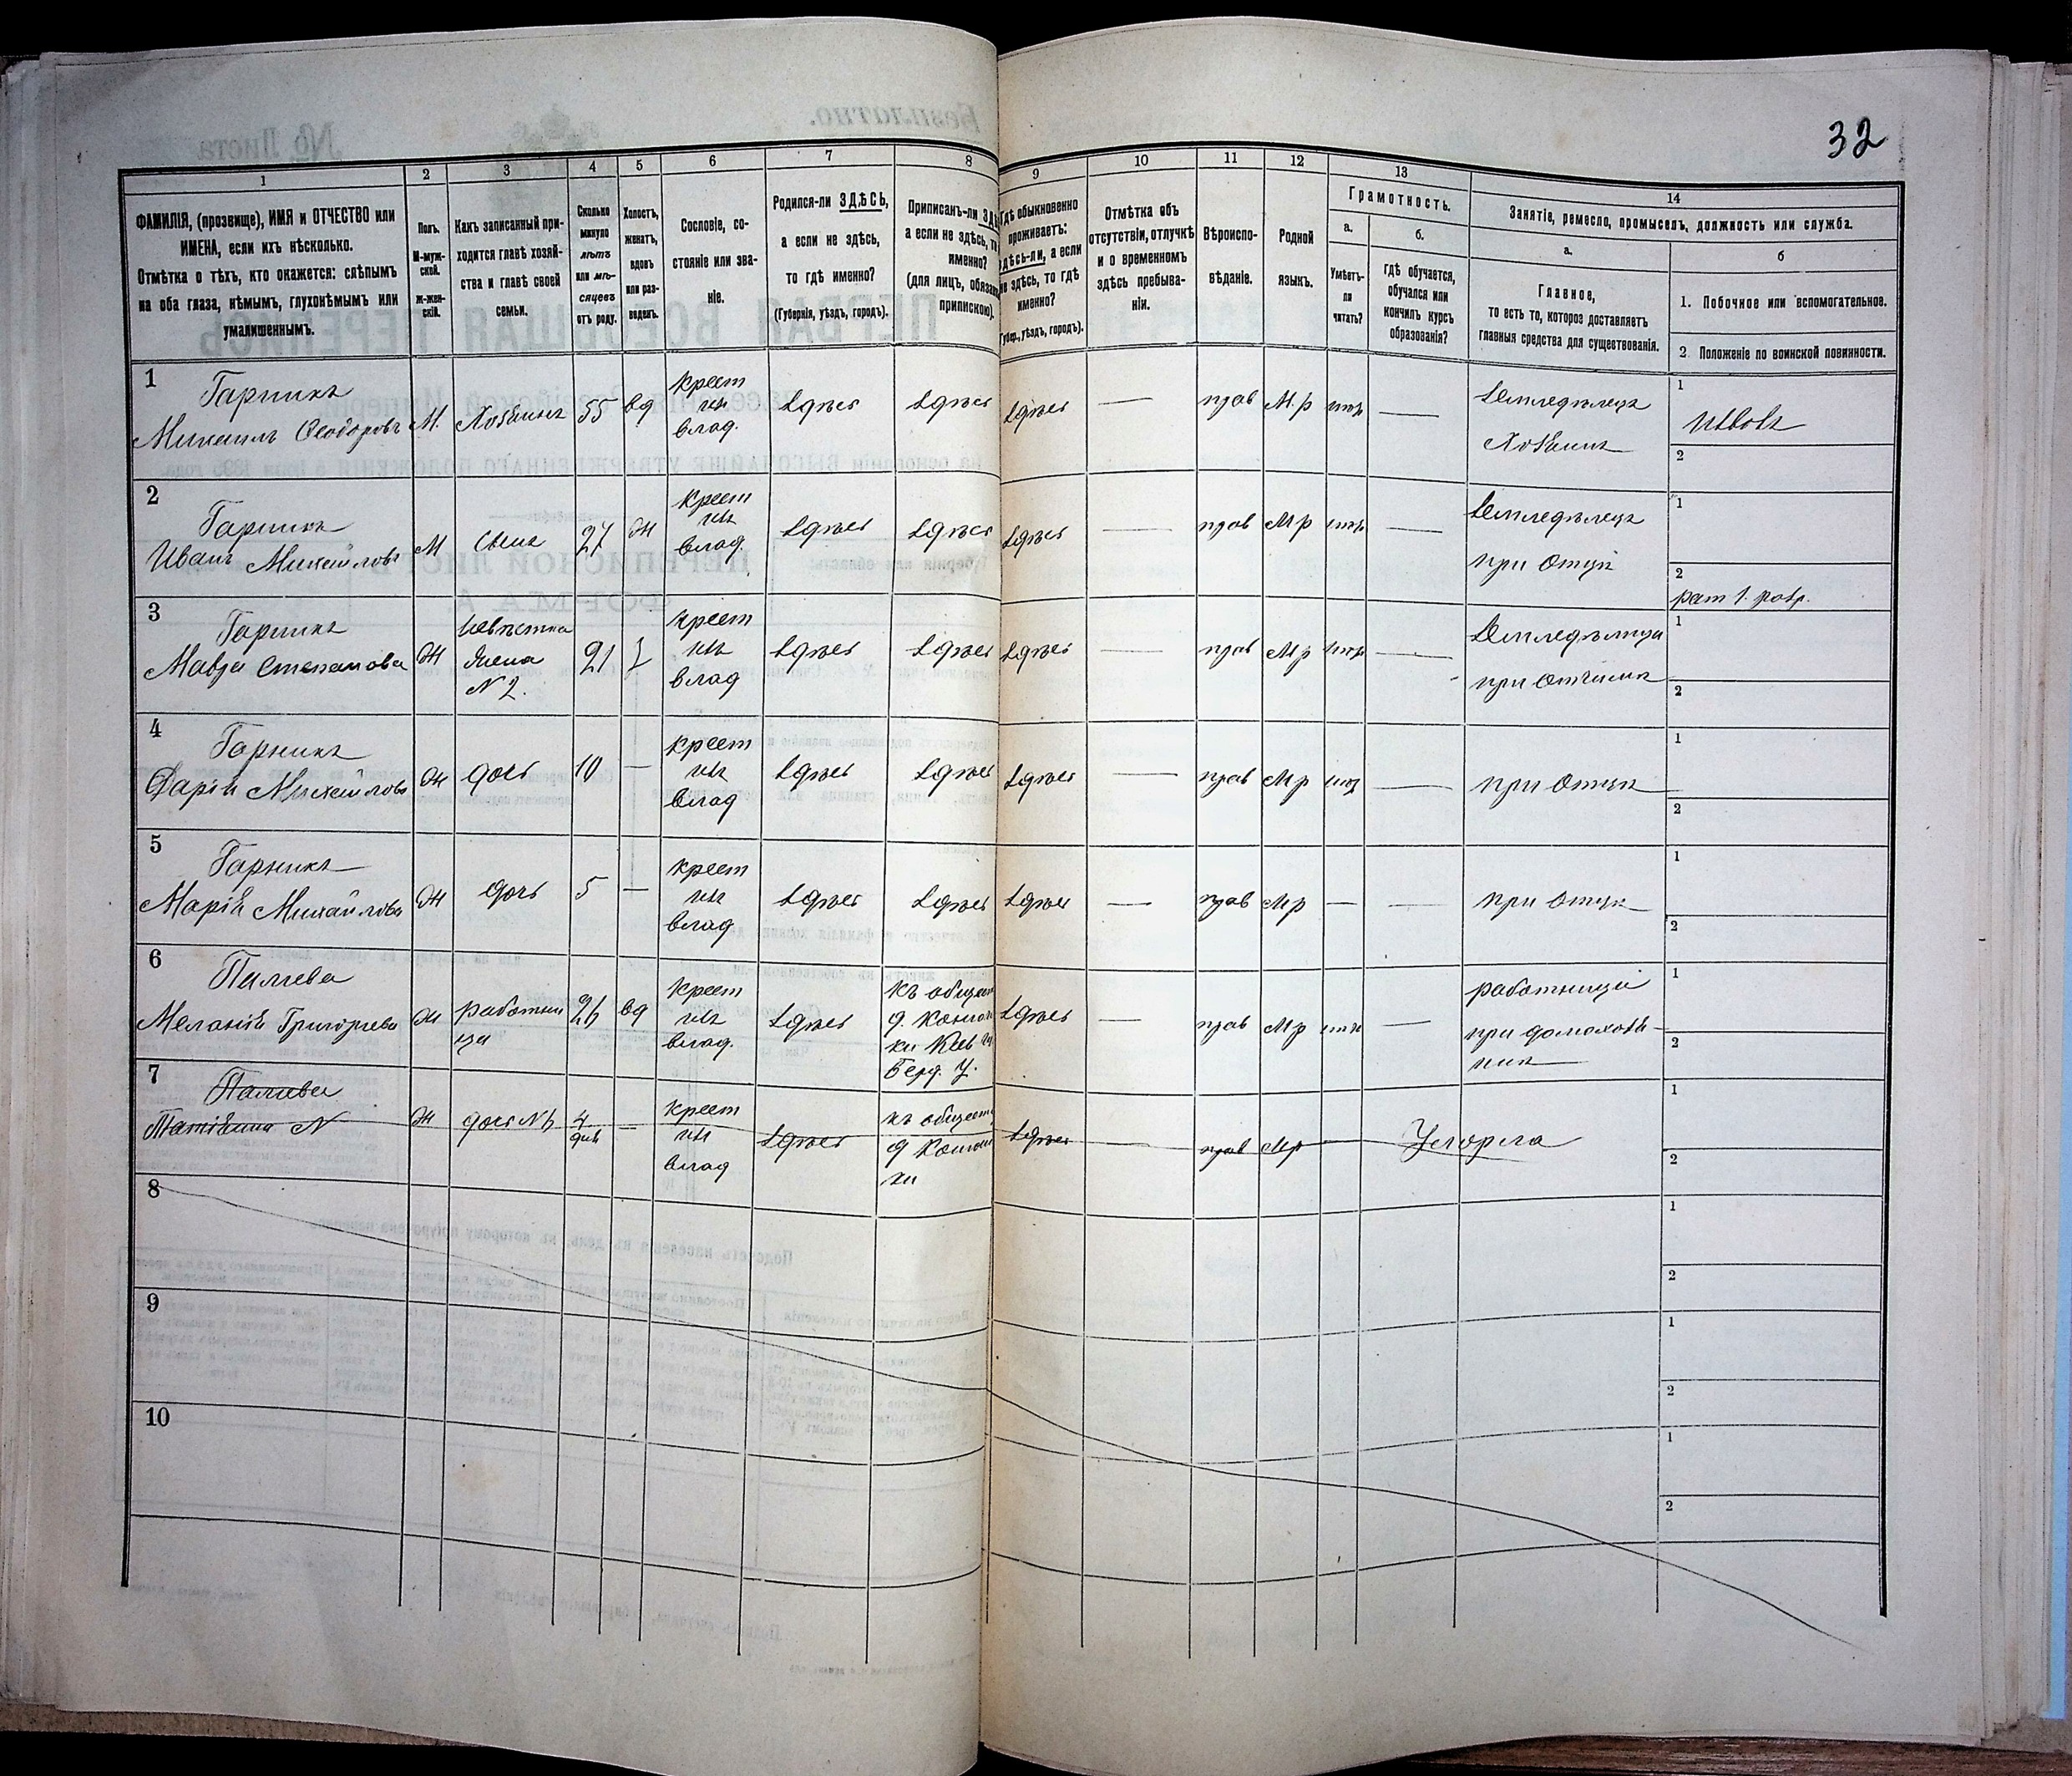 32
1 2 3 4 5 6 7 8 9 10 11 12 13 14
ФАМИЛІЯ, (прозвище), ИМЯ и ОТЧЕСТВО или
ИМЕНА, если ихъ нѣсколько.
Отмѣтка о тѣхъ, кто окажется: слѣпымъ
на оба глаза, нѣмымъ, глухонѣмымъ или
умалишеннымъ.
Полъ.
М-муж-
ской.
ж-жен-
скій.
Какъ записанный при-
ходится главѣ хозяй-
ства и главѣ своей
семьи.
Сколько
минуло
лѣтъ
или мѣ-
сяцевъ
отъ роду.
Холостъ,
женатъ,
вдовъ
или раз-
веденъ.
Сословіе, со-
стояніе или зва-
ніе.
Родился-ли ЗДѢСЬ,
а если не здѣсь,
то гдѣ именно?
(Губернія, уѣздъ, городъ).
Приписанъ-ли
а если не здѣсь,
именно?
(для лицъ,
припискою).
Гдѣ обыкновенно
проживаетъ:
здѣсь-ли, а если
не здѣсь, то гдѣ
именно?
(Губер., уѣздъ, городъ).
Отмѣтка объ
отсутствіи, отлучкѣ
и о временномъ
здѣсь пребыва-
ніи.
Вѣроиспо-
вѣданіе.
Родной
языкъ.
Грамотность.
а.
Умѣетъ-
ли
читать?
б.
гдѣ обучается,
обучался или
кончилъ курсъ
образованія?
Занятіе, ремесло, промыселъ, должность или служба.
а.
Главное,
то есть то, которое доставляетъ
главныя средства для существованія.
б
1. Побочное или вспомогательное.
2. Положеніе по воинской повинности.
1
Гарникъ
Михаилъ Ѳеодоровъ М. Хозяинъ 55 вд
крест
изъ
влад.
здѣсь здѣсь здѣсь — прав М.р —
Земледѣлецъ
Хозяинъ
1
2
2
Гарникъ
Иванъ Михайловъ М Сынъ 27 ж
крест
изъ
влад.
здѣсь здѣсь здѣсь — прав М р —
Земледѣлецъ
при отцѣ
1
2
рат 1. разр.
3
Гарникъ
Мавра Степанова Ж
Невѣстка
жена
N 2.
21 з
крест
изъ
влад
здѣсь здѣсь здѣсь — прав М р —
при
1
2
4
Гарникъ
Дарія Михайлова Ж дочь 10 —
крест
изъ
влад
здѣсь здѣсь здѣсь — прав М р —
при отцѣ
1
2
5
Гарникъ
Марія Михайлова Ж дочь 5 —
крест
изъ
влад
здѣсь здѣсь здѣсь — прав М р — —
при отцѣ
1
2
6
Меланія Григорьева Ж
работни
ца
26 вд
крест
изъ
влад.
здѣсь
къ
д.
Берд. у.
здѣсь — прав М р —
работница
при домохозя-
инѣ
1
2
7
Ж дочь N 6
4
дня
—
крест
изъ
влад
здѣсь
къ
д
здѣсь — прав М р — Умерла
1
2
8
1
2
9
1
2
10
1
2